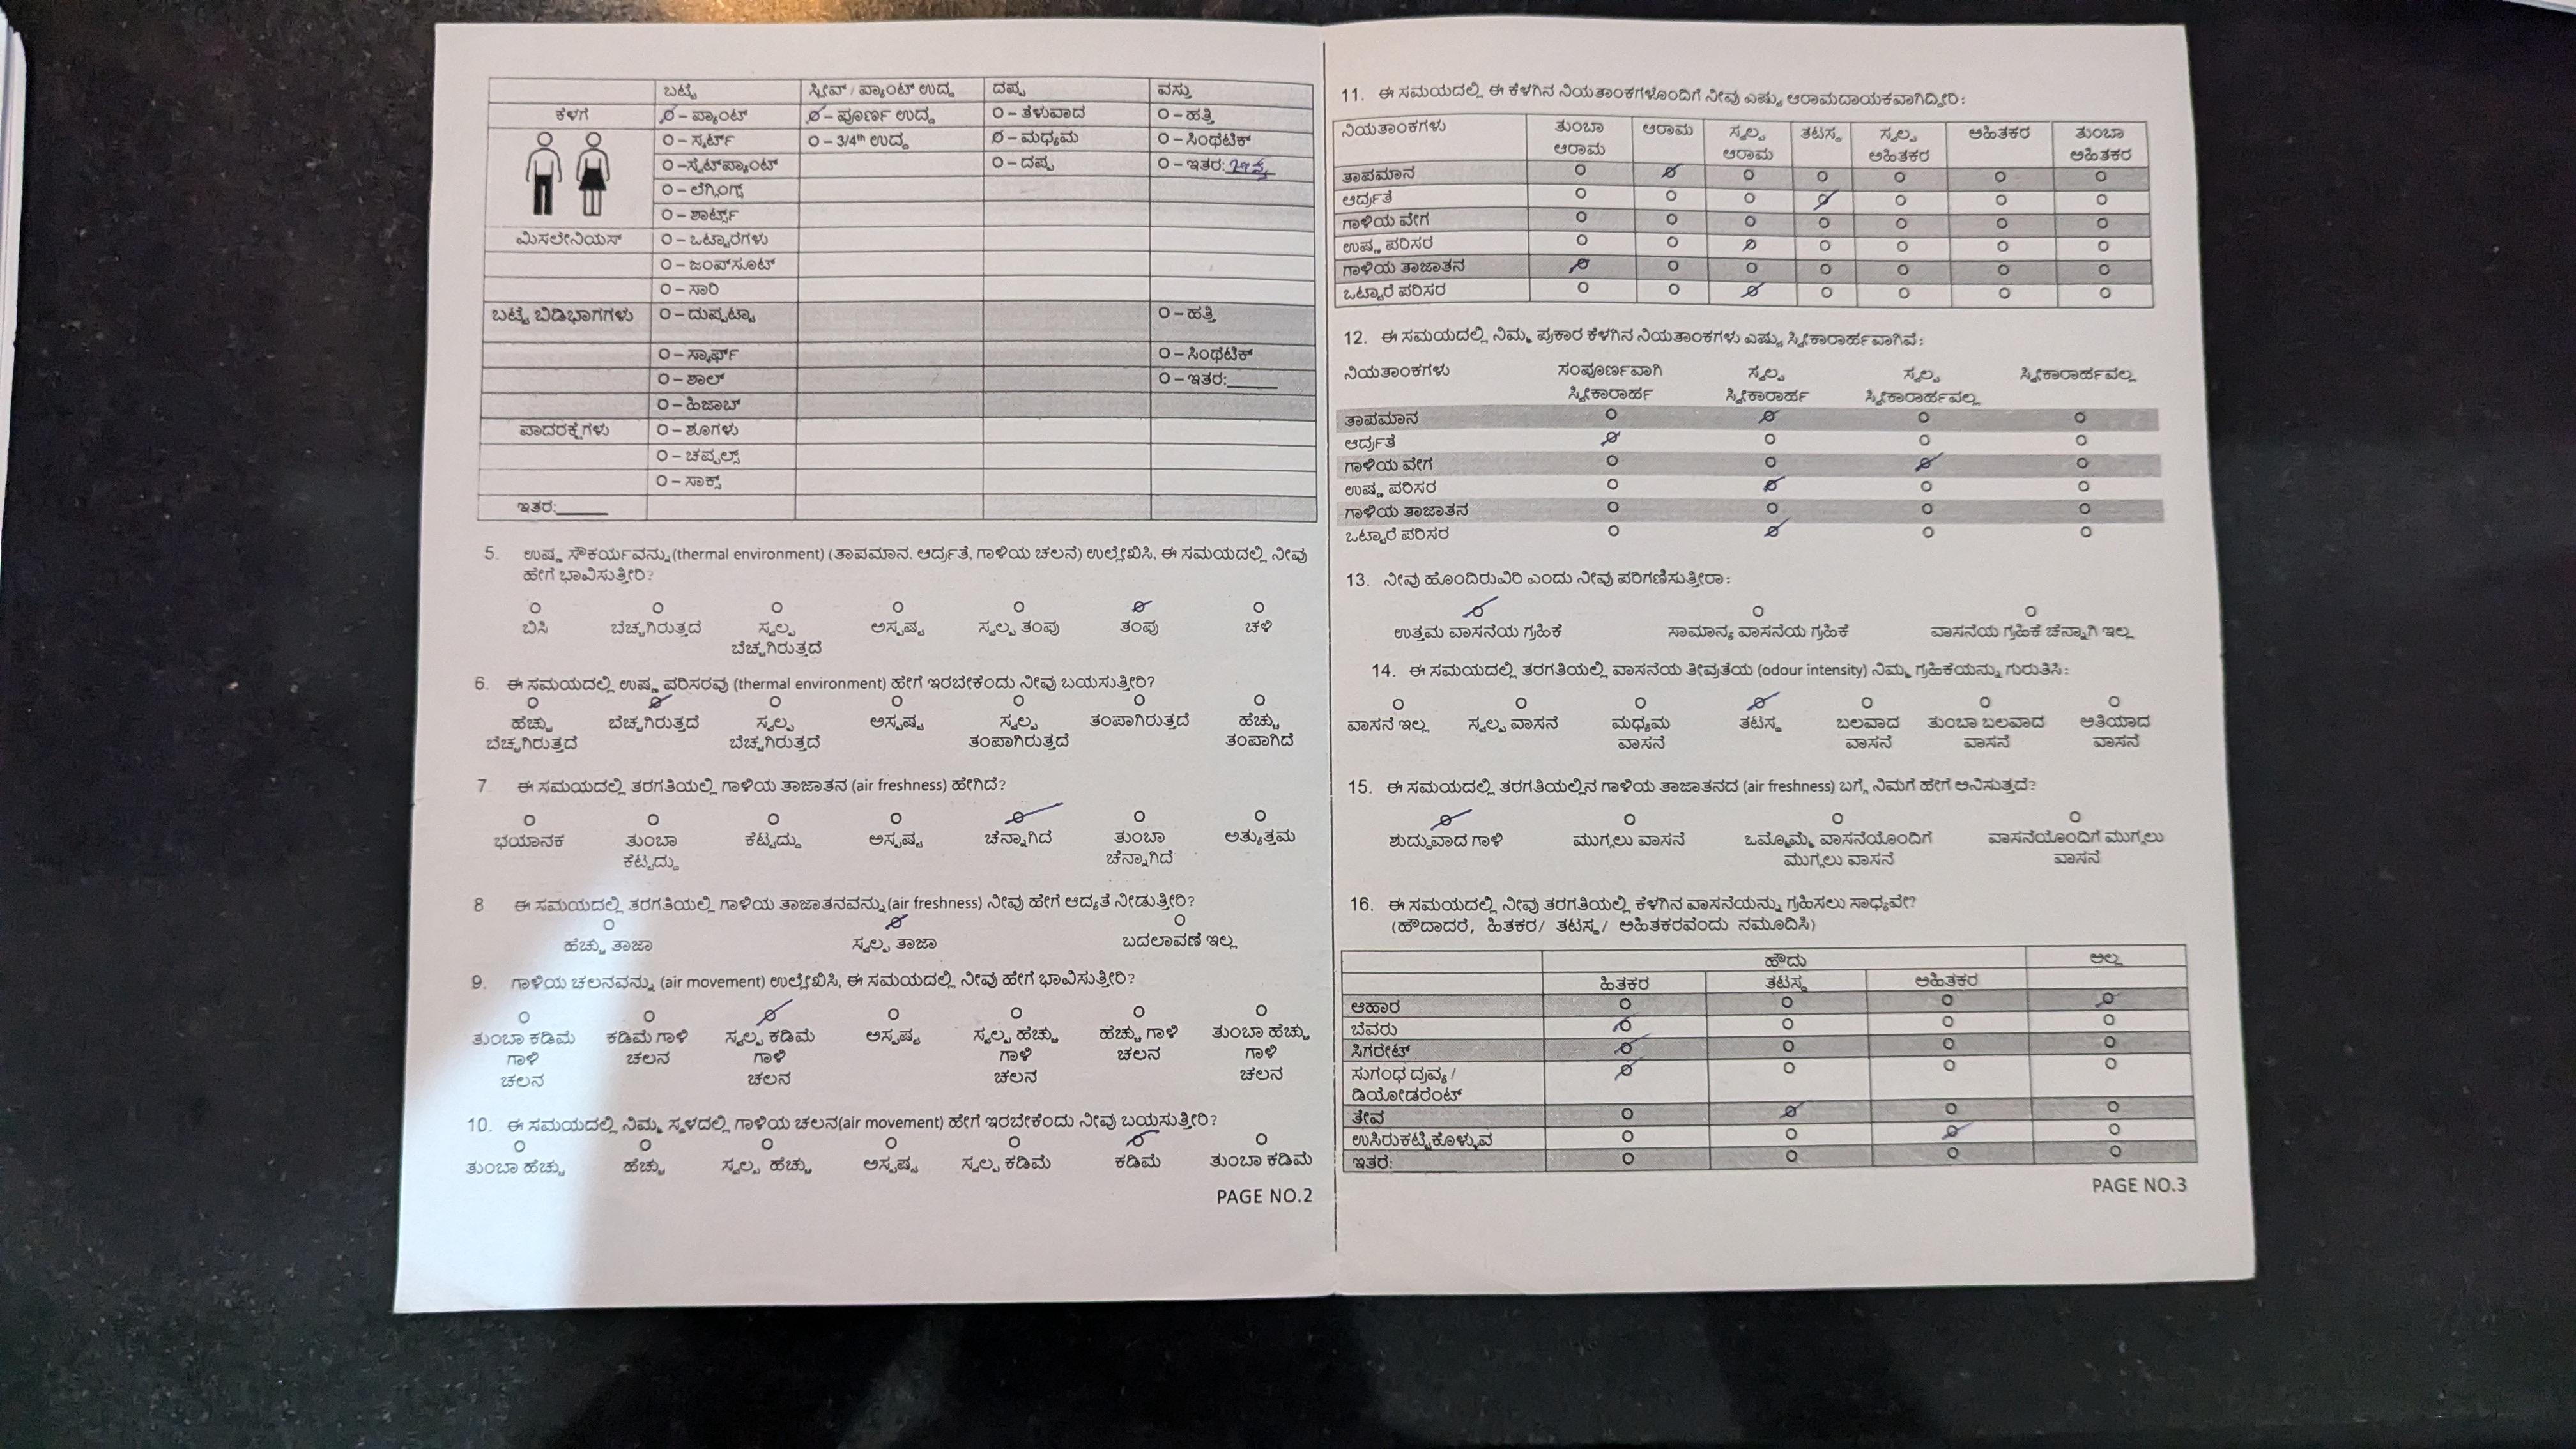 ಬಟ್ಟೆ ಸ್ಲೀವ್ / ಪ್ಯಾಂಟ್ ಉದ್ದ ದಪ್ಪ ವಸ್ತು
ಕೆಳಗೆ O – ಪ್ಯಾಂಟ್ O – ಪೂರ್ಣ ಉದ್ದ O – ತೆಳುವಾದ O – ಹತ್ತಿ
O – ಸ್ಕರ್ಟ್ O – 3/4th ಉದ್ದ O – ಮಧ್ಯಮ O – ಸಿಂಥಟಿಕ್
O –ಸ್ವೆಟ್‌ಪ್ಯಾಂಟ್ O – ದಪ್ಪ O – ಇತರ:
O – ಲೆಗ್ಗಿಂಗ್ಸ್
O – ಶಾರ್ಟ್ಸ್
ಮಿಸಲೇನಿಯಸ್ O – ಒಟ್ಟಾರೆಗಳು
O – ಜಂಪ್‌ಸೂಟ್
O – ಸಾರಿ
ಬಟ್ಟೆ ಬಿಡಿಭಾಗಗಳು O – ದುಪ್ಪಟ್ಟಾ O – ಹತ್ತಿ
O – ಸ್ಕಾರ್ಫ್ O – ಸಿಂಥೆಟಿಕ್
O – ಶಾಲ್ O – ಇತರ:______
O – ಹಿಜಾಬ್
ಪಾದರಕ್ಷೆಗಳು O – ಶೂಗಳು
O – ಚಪ್ಪಲ್ಸ್
O – ಸಾಕ್ಸ್
ಇತರ:______
5. ಉಷ್ಣ ಸೌಕರ್ಯವನ್ನು(thermal environment) (ತಾಪಮಾನ. ಆರ್ದ್ರತೆ, ಗಾಳಿಯ ಚಲನೆ) ಉಲ್ಲೇಖಿಸಿ, ಈ ಸಮಯದಲ್ಲಿ ನೀವು
ಹೇಗೆ ಭಾವಿಸುತ್ತೀರಿ?
O O O O O O O
ಬಿಸಿ ಬೆಚ್ಚಗಿರುತ್ತದೆ ಸ್ವಲ್ಪ ಅಸ್ಪಷ್ಟ ಸ್ವಲ್ಪ ತಂಪು ತಂಪು ಚಳಿ
ಬೆಚ್ಚಗಿರುತ್ತದೆ
6. ಈ ಸಮಯದಲ್ಲಿ ಉಷ್ಣ ಪರಿಸರವು (thermal environment) ಹೇಗೆ ಇರಬೇಕೆಂದು ನೀವು ಬಯಸುತ್ತೀರಿ?
O O O O O O O
ಹೆಚ್ಚು ಬೆಚ್ಚಗಿರುತ್ತದೆ ಸ್ವಲ್ಪ ಅಸ್ಪಷ್ಟ ಸ್ವಲ್ಪ ತಂಪಾಗಿರುತ್ತದೆ ಹೆಚ್ಚು
ಬೆಚ್ಚಗಿರುತ್ತದೆ ಬೆಚ್ಚಗಿರುತ್ತದೆ ತಂಪಾಗಿರುತ್ತದೆ ತಂಪಾಗಿದೆ
7 ಈ ಸಮಯದಲ್ಲಿ ತರಗತಿಯಲ್ಲಿ ಗಾಳಿಯ ತಾಜಾತನ (air freshness) ಹೇಗಿದೆ?
O O O O O O O
ಭಯಾನಕ ತುಂಬಾ ಕೆಟ್ಟದ್ದು ಅಸ್ಪಷ್ಟ ಚೆನ್ನಾಗಿದೆ ತುಂಬಾ ಅತ್ಯುತ್ತಮ
ಕೆಟ್ಟದ್ದು ಚೆನ್ನಾಗಿದೆ
8 ಈ ಸಮಯದಲ್ಲಿ ತರಗತಿಯಲ್ಲಿ ಗಾಳಿಯ ತಾಜಾತನವನ್ನು(air freshness) ನೀವು ಹೇಗೆ ಆದ್ಯತೆ ನೀಡುತ್ತೀರಿ?
O O O
ಹೆಚ್ಚು ತಾಜಾ ಸ್ವಲ್ಪ ತಾಜಾ ಬದಲಾವಣೆ ಇಲ್ಲ
9. ಗಾಳಿಯ ಚಲನವನ್ನು (air movement) ಉಲ್ಲೇಖಿಸಿ, ಈ ಸಮಯದಲ್ಲಿ ನೀವು ಹೇಗೆ ಭಾವಿಸುತ್ತೀರಿ?
O O O O O O O
ತುಂಬಾ ಕಡಿಮೆ ಕಡಿಮೆ ಗಾಳಿ ಸ್ವಲ್ಪ ಕಡಿಮೆ ಅಸ್ಪಷ್ಟ ಸ್ವಲ್ಪ ಹೆಚ್ಚು ಹೆಚ್ಚು ಗಾಳಿ ತುಂಬಾ ಹೆಚ್ಚು
ಗಾಳಿ ಚಲನ ಗಾಳಿ ಗಾಳಿ ಚಲನ ಗಾಳಿ
ಚಲನ ಚಲನ ಚಲನ ಚಲನ
10. ಈ ಸಮಯದಲ್ಲಿ ನಿಮ್ಮ ಸ್ಥಳದಲ್ಲಿ ಗಾಳಿಯ ಚಲನ(air movement) ಹೇಗೆ ಇರಬೇಕೆಂದು ನೀವು ಬಯಸುತ್ತೀರಿ?
O O O O O O O
ತುಂಬಾ ಹೆಚ್ಚು ಹೆಚ್ಚು ಸ್ವಲ್ಪ ಹೆಚ್ಚು ಅಸ್ಪಷ್ಟ ಸ್ವಲ್ಪ ಕಡಿಮೆ ಕಡಿಮೆ ತುಂಬಾ ಕಡಿಮೆ
PAGE NO.2
11. ಈ ಸಮಯದಲ್ಲಿ ಈ ಕೆಳಗಿನ ನಿಯತಾಂಕಗಳೊಂದಿಗೆ ನೀವು ಎಷ್ಟು ಆರಾಮದಾಯಕವಾಗಿದ್ದೀರಿ:
ನಿಯತಾಂಕಗಳು ತುಂಬಾ ಆರಾಮ ಸ್ವಲ್ಪ ತಟಸ್ಥ ಸ್ವಲ್ಪ ಅಹಿತಕರ ತುಂಬಾ
ಆರಾಮ ಆರಾಮ ಅಹಿತಕರ ಅಹಿತಕರ
ತಾಪಮಾನ O O O O O O O
ಆರ್ದ್ರತೆ O O O O O O O
ಗಾಳಿಯ ವೇಗ O O O O O O O
ಉಷ್ಣ ಪರಿಸರ O O O O O O O
ಗಾಳಿಯ ತಾಜಾತನ O O O O O O O
ಒಟ್ಟಾರೆ ಪರಿಸರ O O O O O O O
12. ಈ ಸಮಯದಲ್ಲಿ ನಿಮ್ಮ ಪ್ರಕಾರ ಕೆಳಗಿನ ನಿಯತಾಂಕಗಳು ಎಷ್ಟು ಸ್ವೀಕಾರಾರ್ಹವಾಗಿವೆ:
ನಿಯತಾಂಕಗಳು ಸಂಪೂರ್ಣವಾಗಿ ಸ್ವಲ್ಪ ಸ್ವಲ್ಪ ಸ್ವೀಕಾರಾರ್ಹವಲ್ಲ
ಸ್ವೀಕಾರಾರ್ಹ ಸ್ವೀಕಾರಾರ್ಹ ಸ್ವೀಕಾರಾರ್ಹವಲ್ಲ
ತಾಪಮಾನ O O O O
ಆರ್ದ್ರತೆ O O O O
ಗಾಳಿಯ ವೇಗ O O O O
ಉಷ್ಣ ಪರಿಸರ O O O O
ಗಾಳಿಯ ತಾಜಾತನ O O O O
ಒಟ್ಟಾರೆ ಪರಿಸರ O O O O
13. ನೀವು ಹೊಂದಿರುವಿರಿ ಎಂದು ನೀವು ಪರಿಗಣಿಸುತ್ತೀರಾ:
O O O
ಉತ್ತಮ ವಾಸನೆಯ ಗ್ರಹಿಕೆ ಸಾಮಾನ್ಯ ವಾಸನೆಯ ಗ್ರಹಿಕೆ ವಾಸನೆಯ ಗ್ರಹಿಕೆ ಚೆನ್ನಾಗಿ ಇಲ್ಲ
14. ಈ ಸಮಯದಲ್ಲಿ ತರಗತಿಯಲ್ಲಿ ವಾಸನೆಯ ತೀವ್ರತೆಯ (odour intensity) ನಿಮ್ಮ ಗ್ರಹಿಕೆಯನ್ನು ಗುರುತಿಸಿ:
O O O O O O O
ವಾಸನೆ ಇಲ್ಲ ಸ್ವಲ್ಪ ವಾಸನೆ ಮಧ್ಯಮ ತಟಸ್ಥ ಬಲವಾದ ತುಂಬಾ ಬಲವಾದ ಅತಿಯಾದ
ವಾಸನೆ ವಾಸನೆ ವಾಸನೆ ವಾಸನೆ
15. ಈ ಸಮಯದಲ್ಲಿ ತರಗತಿಯಲ್ಲಿನ ಗಾಳಿಯ ತಾಜಾತನದ (air freshness) ಬಗ್ಗೆ ನಿಮಗೆ ಹೇಗೆ ಅನಿಸುತ್ತದೆ?
O O O O
ಶುದ್ದುವಾದ ಗಾಳಿ ಮುಗ್ಗಲು ವಾಸನೆ ಒಮ್ಮೊಮ್ಮೆ ವಾಸನೆಯೊಂದಿಗೆ ವಾಸನೆಯೊಂದಿಗೆ ಮುಗ್ಗಲು
ಮುಗ್ಗಲು ವಾಸನೆ ವಾಸನೆ
16. ಈ ಸಮಯದಲ್ಲಿ ನೀವು ತರಗತಿಯಲ್ಲಿ ಕೆಳಗಿನ ವಾಸನೆಯನ್ನು ಗ್ರಹಿಸಲು ಸಾಧ್ಯವೇ?
(ಹೌದಾದರೆ, ಹಿತಕರ/ ತಟಸ್ಥ/ ಅಹಿತಕರವೆಂದು ನಮೂದಿಸಿ)
ಹೌದು ಅಲ್ಲ
ಹಿತಕರ ತಟಸ್ಥ ಅಹಿತಕರ
ಆಹಾರ O O O O
ಬೆವರು O O O O
ಸಿಗರೇಟ್ O O O O
ಸುಗಂಧ ದ್ರವ್ಯ / O O O O
ಡಿಯೋಡರೆಂಟ್
ತೇವ O O O O
ಉಸಿರುಕಟ್ಟಿಕೊಳ್ಳುವ O O O O
ಇತರೆ: O O O O
PAGE NO.3